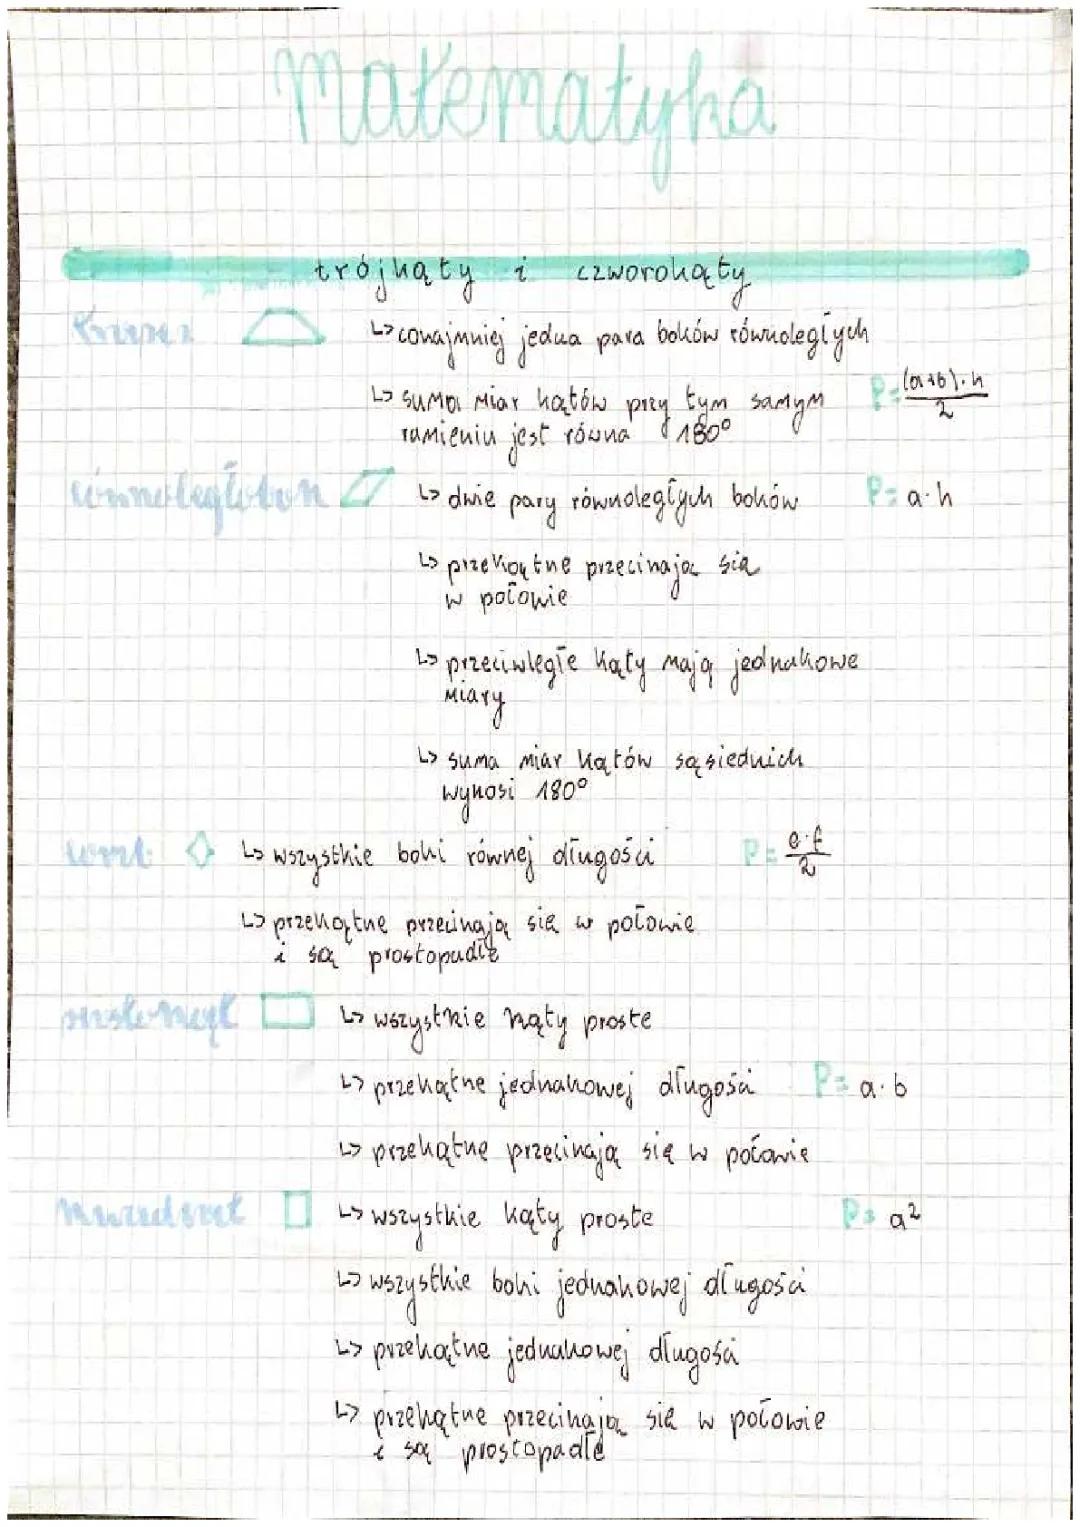 Matematyka
trójkąty i czworokąty
trapez
↳ conajmniej jedna para boków równoległych
↳ suma miar kątów przy tym samym
ramieniu jest równa 180°
P = (a+b)·h / 2
równoległobok
↳ dwie pary równoległych boków P = a·h
↳ przekątne przecinają się
w połowie
↳ przeciwległe kąty mają jednakowe
miary
↳ suma miar kątów sąsiednich
wynosi 180°
romb ↳ wszystkie boki równej długości P = e·f / 2
↳ przekątne przecinają się w połowie
i są prostopadłe
prostokąt ↳ wszystkie kąty proste
↳ przekątne jednakowej długości P = a·b
↳ przekątne przecinają się w połowie
kwadrat ↳ wszystkie kąty proste P = a²
↳ wszystkie boki jednakowej długości
↳ przekątne jednakowej długości
↳ przekątne przecinają się w połowie
i są prostopadłe